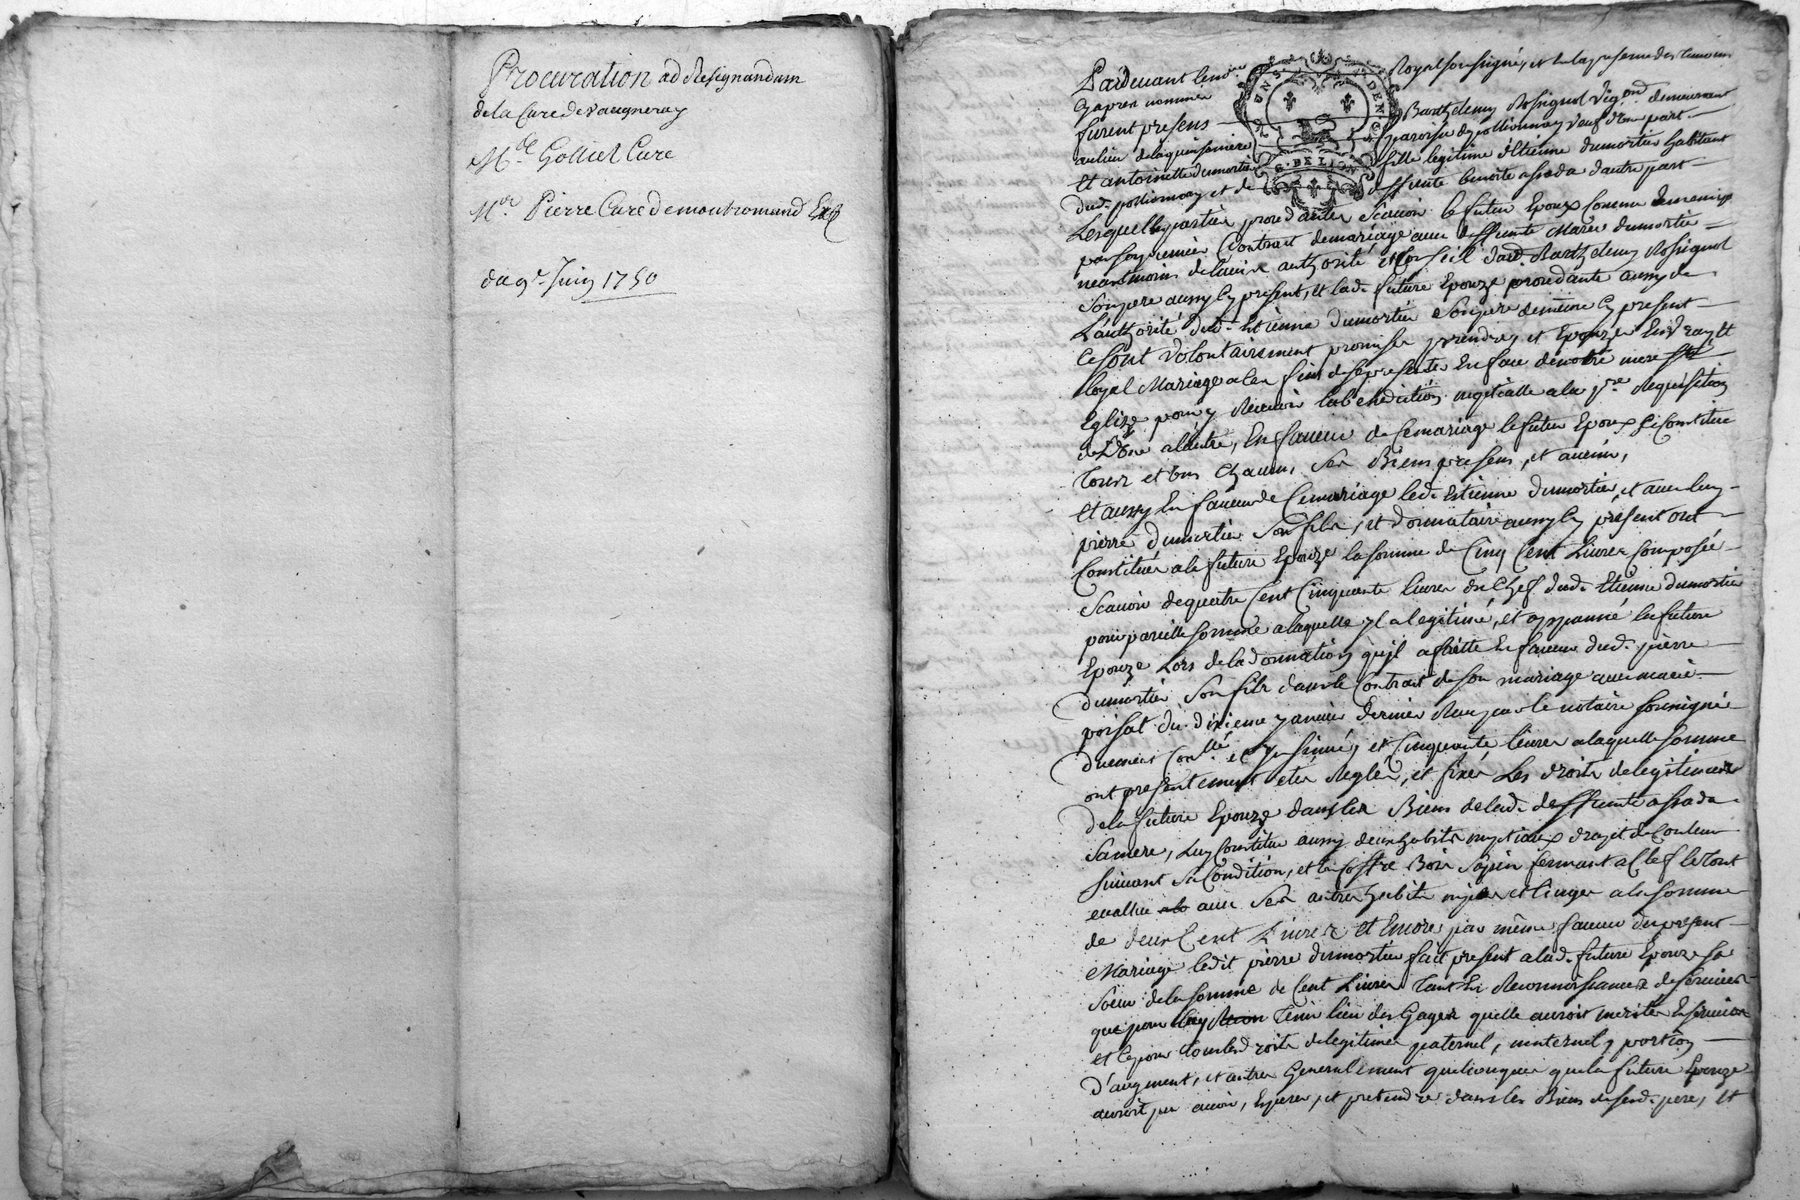 Procuration ad Resignandum
de la Cure de Vaugneray
Mre Golliet Cure
Mre Pierre Cure de montromand
du 9e Juin 1750
Pardevant le nore Royal soussigné, et en la presence des temoins
Cy apres nommés
furent presens Barthelemy Rossignol vigon demeurant
au lieu de la quinsoniere paroisse de pollionnay veuf d'une part
Et antoinette dumortier fille legitime d'Etienne dumortier habitant
dud. pollionnay et de deffunte benoite assada d'autre part
Lesquelles parties procedantes Scavoir le futur Epoux comme
par son premier Contrat de mariage avec deffunte Marie dumortier
neantmoins de l'avis authorité et Conseil dud. Barthelemy Rossignol
Son pere aussy Cy present, et lad. future Epouze procedante aussy de
L'authorité dud. Etienne dumortier Son pere de même Cy present
Ce sont volontairement promis se prendre, et Epouzer En vray et
loyal Mariage a les fins de se presenter En face de notre mere Ste
Eglize pour y Recevoir la benediction nuptialle a la pre Requisition
de L'une a l'autre, En faveur de Ce mariage le futur Epoux se Constitue
tous et uns Chacuns Ses Biens presens, et avenir,
Et aussy En faveur de Ce mariage led. Etienne dumortier, et avec luy
pierre dumortier Son fils, et donnataire aussy Cy present ont
Constitué a la future Epouze la somme de Cinq Cent Livres Composée
Scavoir de quatre Cent Cinquante livres du Chef dud. Etienne dumortier
pour pareille somme a laquelle il a legitimé, et appanné la future
Epouze Lors de la donnation qu'il a faitte En faveur dud. pierre
dumortier Son fils dans le Contrat de son mariage avec marie
poisat du dixieme janvier dernier Reçu par le notaire soussigné
duement Conllé et Insinué, et Cinquante livres a laquelle somme
ont presentement etés Reglés, et fixés Les droits de legitime de
de la future Epouze dans les Biens de lad. deffunte assada
Sa mere, luy Constitue aussy deux habits nuptiaux drap et de Couleur
suivant Sa Condition, et un Coffre Bois Sapin fermant a Clef le tout
evallué avec Ses autres habits nipes et linges a la somme
de deux Cent Livres Et Encore par même faveur du present
Mariage ledit pierre dumortier fait present a lad. future Epouze sa
Soeur de la somme de Cent Livres tant En Reconnoissance de services
que pour luy tenir lieu des Gages quelle auroit merité En service
et Ce pour tous les droits de legitimes paternel, maternel, portion
d'augment, et autres Generalement quelconques que la future Epouze
auroit pu avoir, Esperer, et pretendre dans les Biens de sond. pere, Et